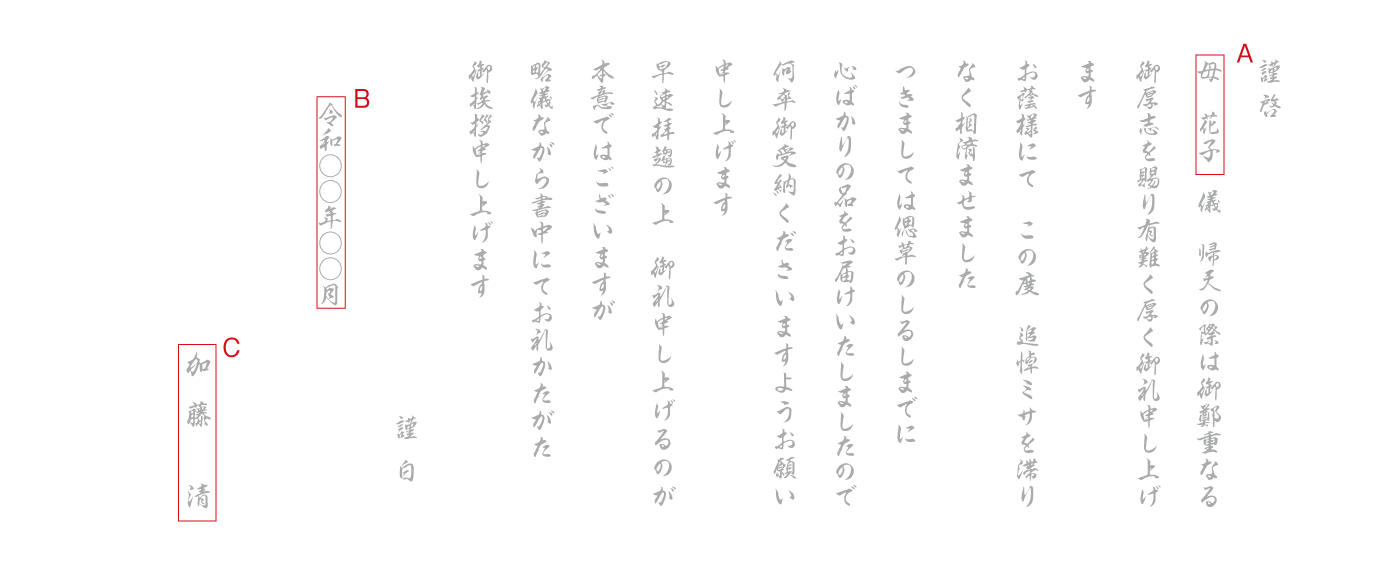 謹啓
A
母 花子 儀 帰天の際は御鄭重なる
御厚志を賜り有難く厚く御礼申し上げ
ます
お蔭様にて この度 追悼ミサを滞り
なく相済ませました
つきましては偲草のしるしまでに
心ばかりの品をお届けいたしましたので
何卒御受納くださいますようお願い
申し上げます
早速拝趨の上 御礼申し上げるのが
本意ではございますが
略儀ながら書中にてお礼かたがた
御挨拶申し上げます
謹白
B
令和〇〇年〇〇月
C
加藤 清